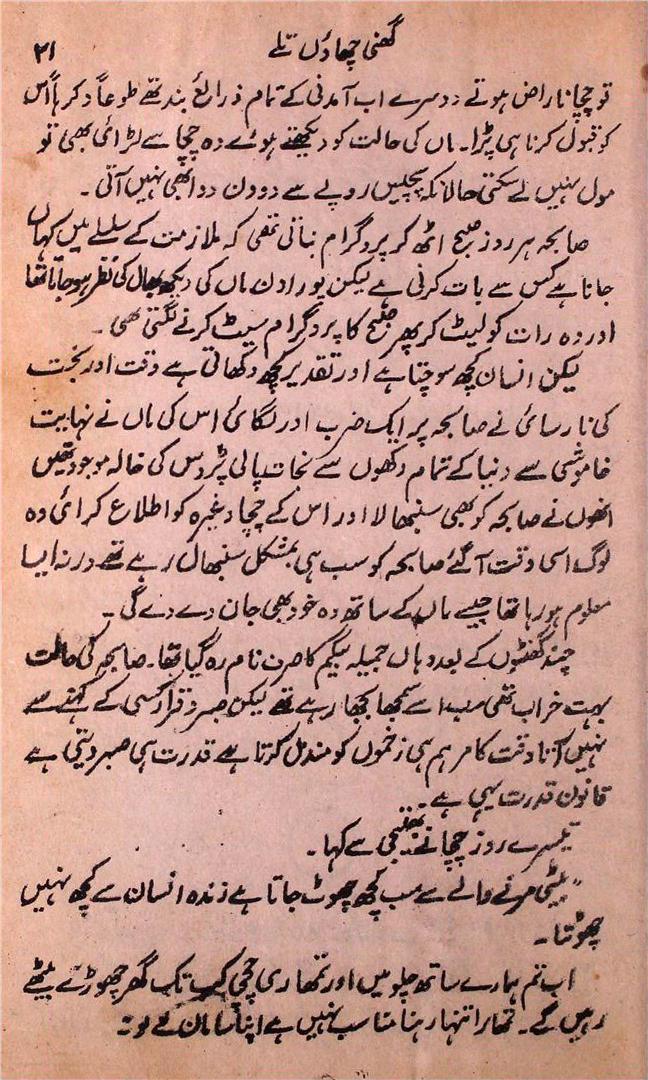 گھنی چھاؤں تلے
۲۱
تو چچا ناراض ہوتے دوسرے اب آمدنی کے تمام ذرائع بند تھے طوعاً و کرہاً اُس
کو قبول کرنا ہی پڑا۔ ماں کی حالت کو دیکھتے ہوئے وہ چچا سے لڑائی بھی تو
مول نہیں لے سکتی حالانکہ پچیس روپے سے دو دن دوا بھی نہیں آتی۔
صابحہ ہر روز صبح اٹھ کر پروگرام بناتی تھی کہ ملازمت کے سلسلے میں کہاں
جانا ہے کس سے بات کرنی ہے لیکن پورا دن ماں کی دیکھ بھال کی نظر ہو جاتا تھا
اور وہ رات کو لیٹ کر پھر صبح کا پروگرام سیٹ کرنے لگتی تھی۔
لیکن انسان کچھ سوچتا ہے اور تقدیر کچھ دکھاتی ہے وقت اور بخت
کی نارسائی نے صابحہ پر ایک ضرب اور لگائی اس کی ماں نے نہایت
خاموشی سے دنیا کے تمام دکھوں سے نجات پالی پڑوس کی خالہ موجود تھیں
انھوں نے صابحہ کو بھی سنبھالا اور اس کے چچا وغیرہ کو اطلاع کرائی وہ
لوگ اسی وقت آگئے صابحہ کو سب ہی بمشکل سنبھال رہے تھے ورنہ ایسا
معلوم ہو رہا تھا جیسے ماں کے ساتھ وہ خود بھی جان دے دے گی۔
چند گھنٹوں کے بعد وہاں جمیلہ بیگم کا صرف نام رہ گیا تھا۔ صابحہ کی حالت
بہت خراب تھی سب اسے سمجھا بجھا رہے تھے لیکن صبر و قرار کسی کے کہنے سے
نہیں آتا وقت کا مرہم ہی زخموں کو مندمل کرتا ہے قدرت ہی صبر دیتی ہے
قانون قدرت یہی ہے۔
تیسرے روز چچا نے بھتیجی سے کہا۔
"بیٹی مرنے والے سے سب کچھ چھوٹ جاتا ہے زندہ انسان سے کچھ نہیں
چھوٹتا۔
اب تم ہمارے ساتھ چلو میں اور تمھاری چچی کب تک گھر چھوڑے بیٹھے
رہیں گے۔ تمھارا تنہا رہنا مناسب نہیں ہے اپنا سامان لے لو۔